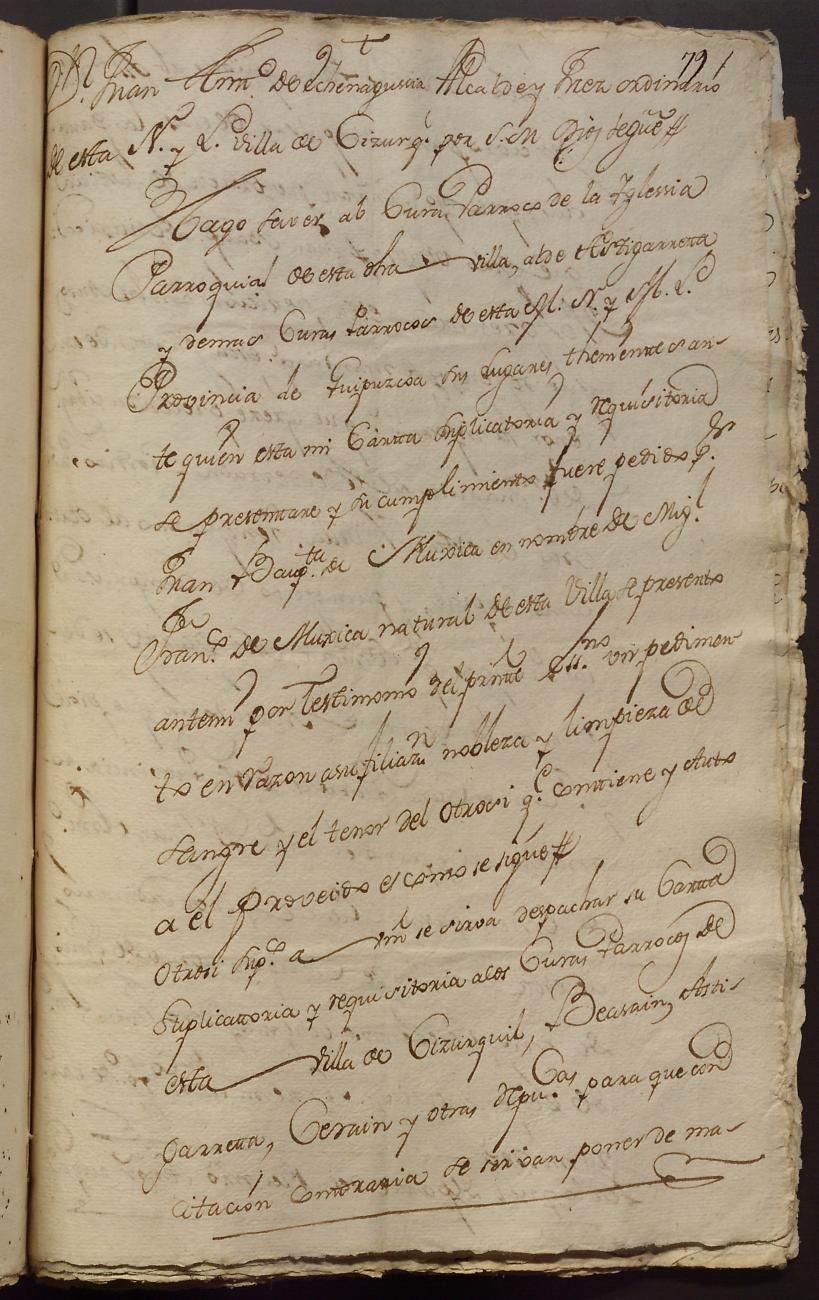 79
Dn. Juan Antto. de echenagussia Alcalde y Juez ordinario
de esta N. y L. Villa de Cizurql. por S. M. Dios le gue. //
Hago saver al Cura Parroco de la Iglessia
Parroquial de esta dha villa, al de Astigarreta
y demas Curas Parrocos de esta M. N. y M. L.
Provincia de Guipuzcoa sus Lugares, thenientes an-
te quien esta mi Cartta suplicatoria y requisitoria
se presenttare y su cumplimiento fuere pedido q.
Juan Baupta. de Muxica en nombre de Migl.
Franco. de Muxica natural de esta Villa se presento
antemi por Testimonio del preste. essno. un pedimen-
to en razon a su filiazn. nobleza y limpieza de
sangre y el tenor del Otrosi qe. contiene y Auto
a él proveido es como se sigue //
Otrosi supco. a vm se sirva despachar su Cartta
Suplicattoria y requisitoria a los Curas Parrocos de
esta villa de Cizurquil, Beasain, Asti-
garretta, Cerain y otras Repucas. para que con
citación contraria se sirvan poner de ma-